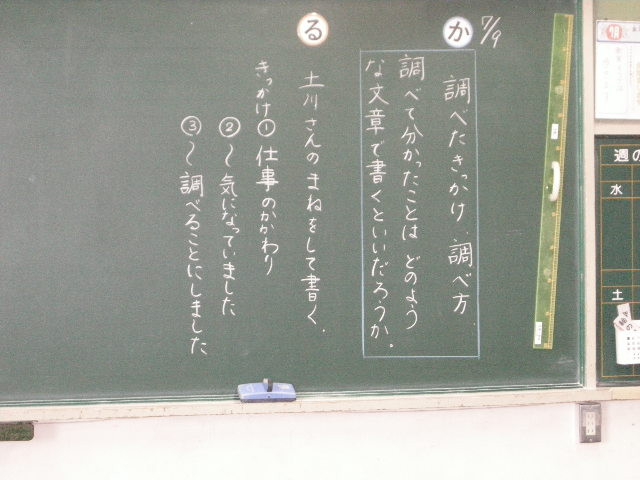 7/9
か
調べたきっかけ、調べ方、
調べて分かったことは どのよう
な文章で書くといいだろうか。
る
土川さんのまねをして書く。
きっかけ① 仕事のかかわり
②〜気になっていました
③〜調べることにしました
週の
水
土